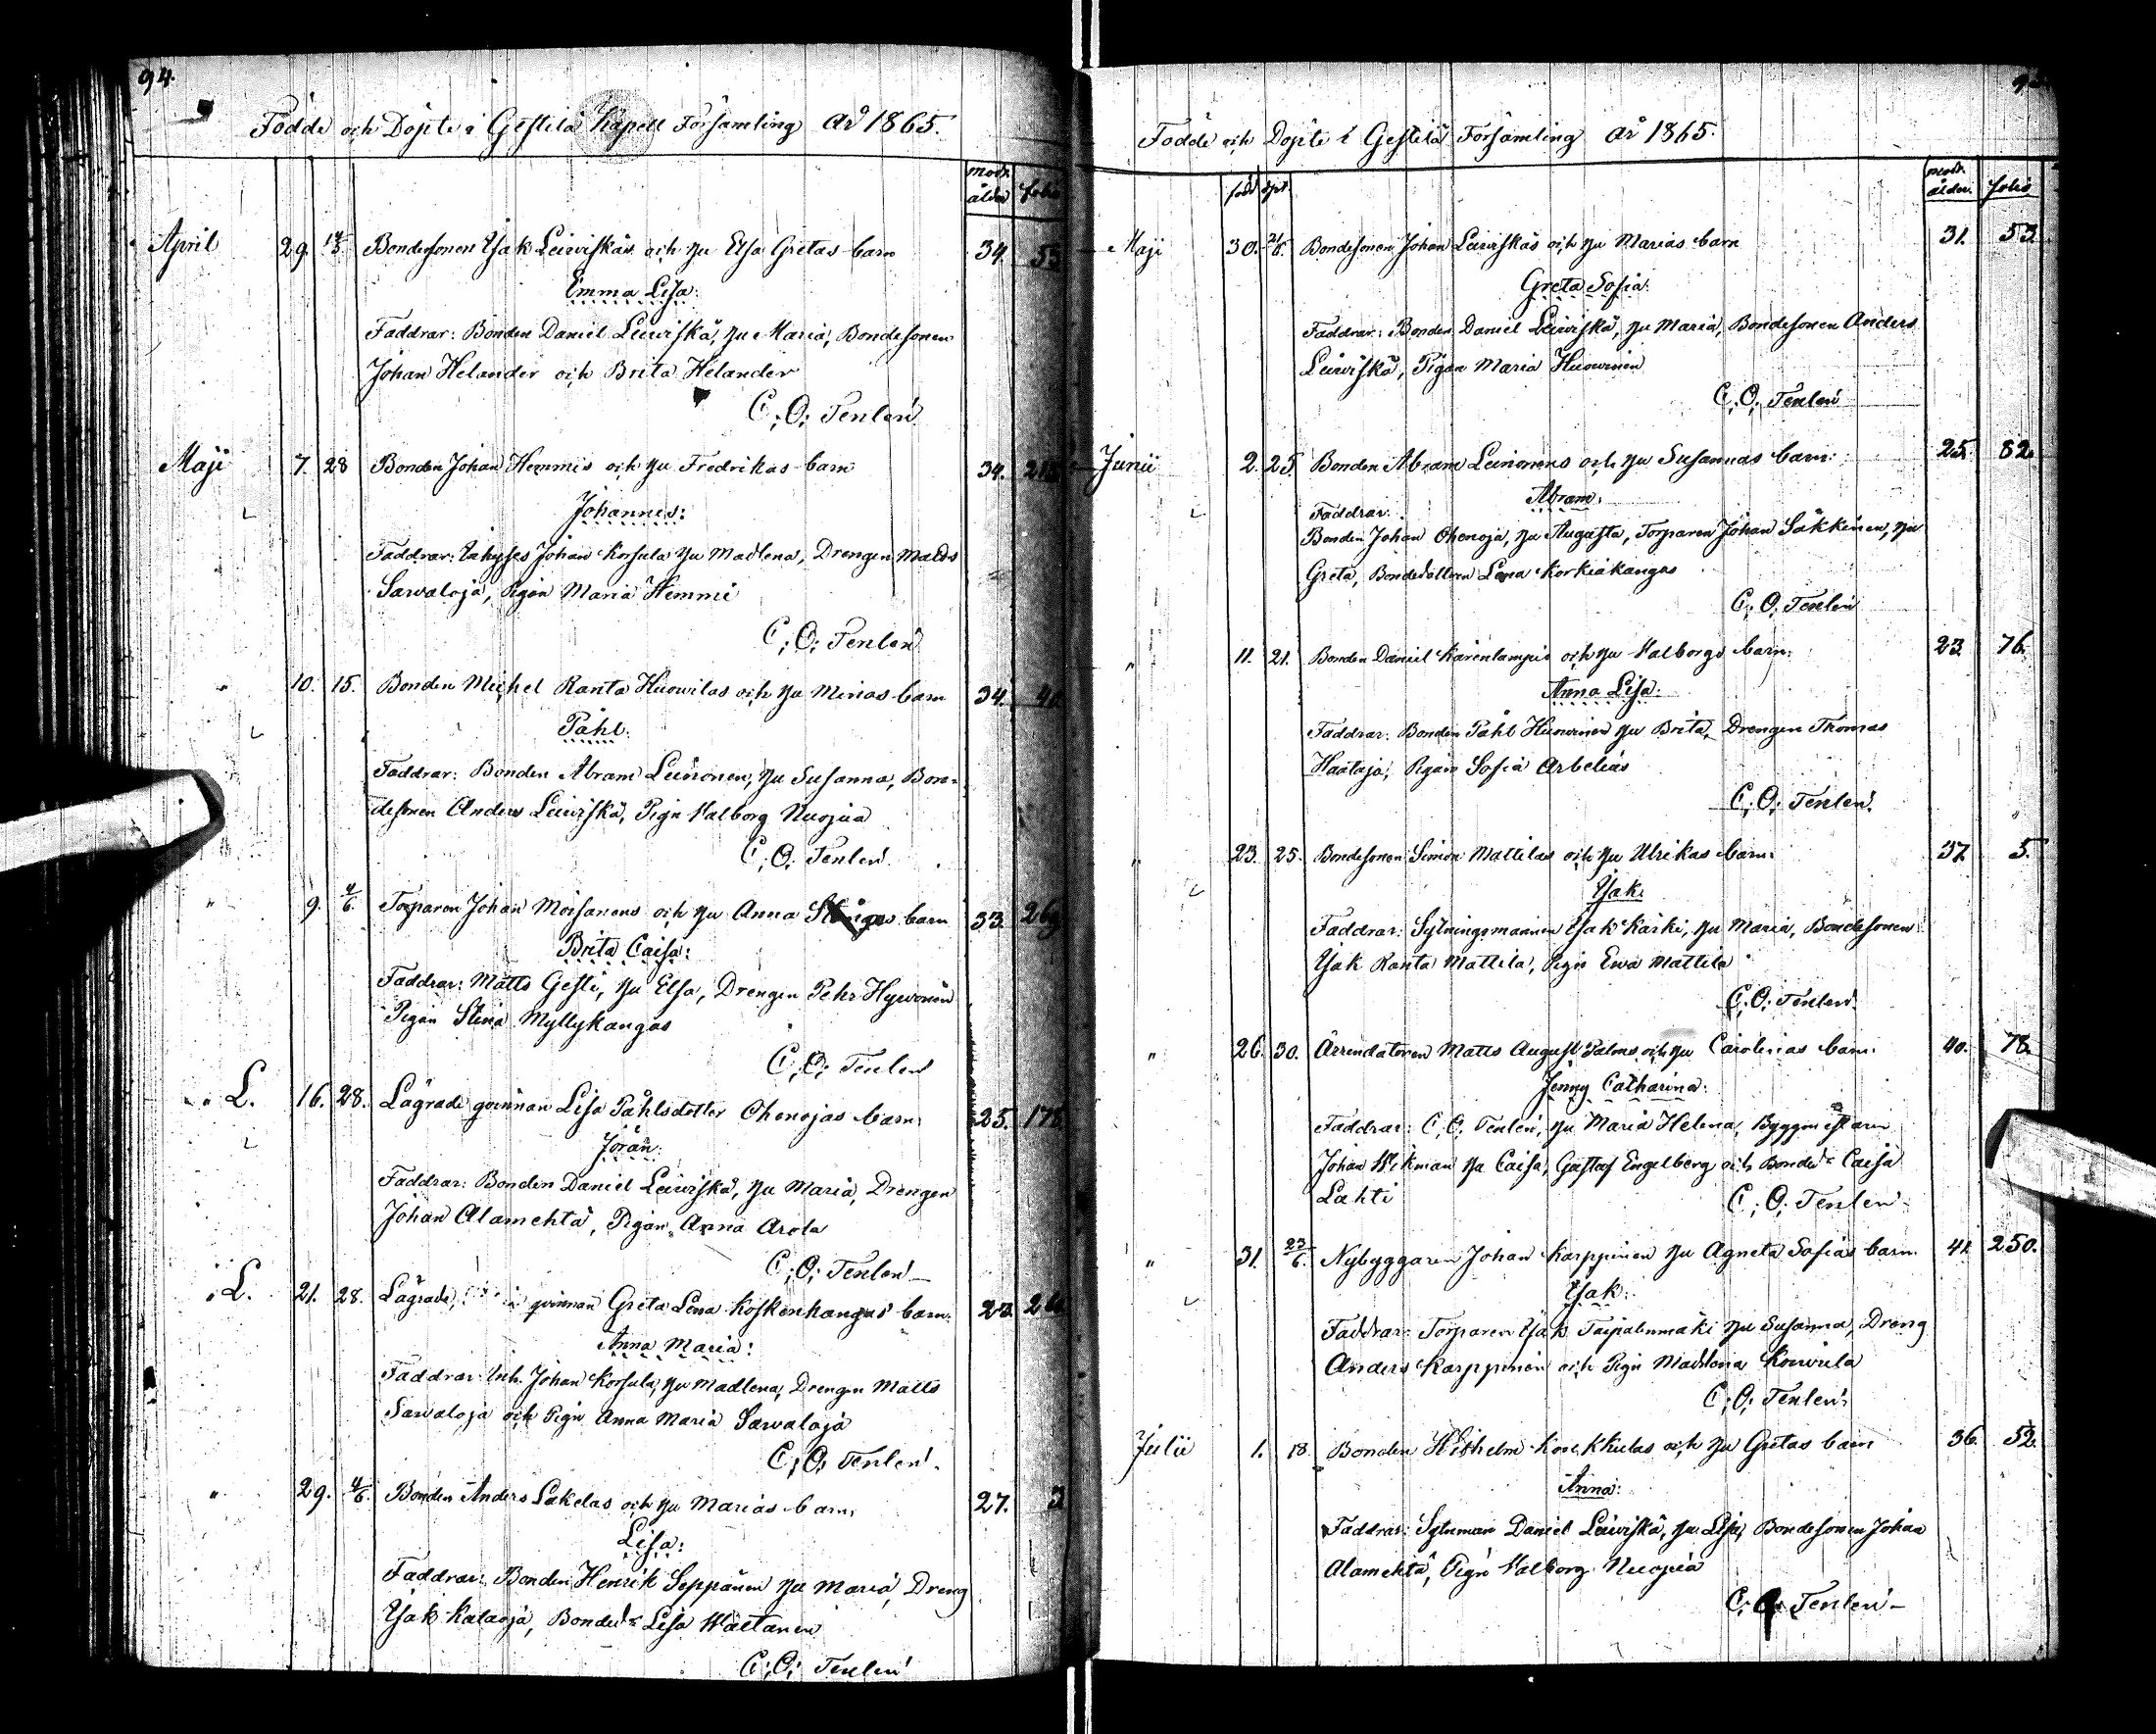 94.
Födde och Döpte i Gestilä Kapell Församling år 1865.
modr. ålder folio
April 29. 14/5. Bondesonen Isak Leiviskäs och hu Elsa Gretas barn 34. 53
Emma Lisa:
Faddrar: Bonden Daniel Leiviskä, hu Maria, Bondesonen
Johan Helander och Brita Helander
C. O. Tenlén
Maji 7. 28 Bonden Johan Hemmis och hu Fredrikas barn 34.
Johannes:
Faddrar: Inhyses Johan Korsula hu Madlena, Drengen Matts
Sarvaloja, Pigan Maria Hemmi
C. O. Tenlén
" 10. 15. Bonden Michel Ranta Huovilas och hu Minas barn 34.
Påhl:
Faddrar: Bonden Abram Leinonen, hu Susanna, Bon-
desonen Anders Leiviskä, Pign Valborg Nuojua
C. O. Tenlén
" 9. 4/6. Torparen Johan Moisanens och hu Anna barn 33. 269
Brita Caisa:
Faddrar: Matts Gesti, hu Elsa, Drengen Pehr Hyvönen
Pigan Stina Myllykangas
C. O. Tenlén
" L. 16. 28. Lägrade qvinnan Lisa Påhlsdotter Ohenojas barn 25. 178
Jöran:
Faddrar: Bonden Daniel Leiviskä, hu Maria, Drengen
Johan Alamehtä, Pigan Anna Arola
C. O. Tenlén
" L. 21. 28. Lägrade qvinnan Greta Lena Koskenkangas barn
Anna Maria:
Faddrar: Inh. Johan Korsula, hu Madlena, Drengen Matts
Sarvaloja och Pign Anna Maria Sarvaloja
C. O. Tenlén
" 29. 4/6. Bonden Anders Lakelas och hu Marias barn 27. 3
Lisa:
Faddrar: Bonden Henrik Seppänen hu Maria, Dreng
Isak Kalaoja, Bonded:r Lisa Wäetanen
C. O. Tenlén
Födde och Döpte i Gestilä Församling år 1865.
född dpt. modr. ålder. folio
Maji 30. Bondesonen Johan Leiviskäs och hu Marias barn 31. 53
Greta Sofia:
Faddrar: Bonden Daniel Leiviskä, hu Maria, Bondesonen Anders
Leiviskä, Pigan Maria Huovinen
C. O. Tenlén
Junii 2. 25. Bonden Abram Leinonens och hu Susannas barn: 25. 82.
Abram:
Faddrar:
Bonden Johan Ohenoja, hu Augusta, Torparen Johan Säkkinen, hu
Greta, Bondedottren Lena Korkiakangas
C. O. Tenlén
" 11. 21. Bonden Daniel Kärenlampis och hu Valborgs barn: 23. 76.
Anna Lisa:
Faddrar: Bonden Påhl Huovinen hu Brita, Drengen Thomas
Haataja, Pigan Sofia Arbelius
C. O. Tenlén
" 23. 25. Bondesonen Simon Mattilas och hu Ulrikas barn: 37. 5.
Isak
Faddrar: Sytningsmannen Isak Karki, hu Maria, Bondesonen
Isak Ranta Mattila, Pign Ewa Mattila
C. O. Tenlén
" 26. 30. Arrendatoren Matts August Palms och hu Carolinas barn: 40. 78.
Jenny Catharina:
Faddrar: C. O. Tenlén, hu Maria Helena, Byggmästaren
Johan Wikman hu Caisa, Gustaf Engelberg och Bonded:r Caisa
Lahti C. O. Tenlén
" 31. 23/6. Nybyggaren Johan Karppinen hu Agneta Sofias barn. 41. 250.
Isak:
Faddrar: Torparen Isak Taipalenmäki hu Susanna, Dreng
Anders Karppinen och Pign Madlena Koivula
C. O. Tenlén
Julii 1. 18. Bonden Wilhelm och hu Gretas barn 36. 52.
Anna:
Faddrar: Sytnman Daniel Leiviskä, hu Lisa, Bondesonen Johan
Alamehtä, Pign Valborg Nuojua
C. O. Tenlén